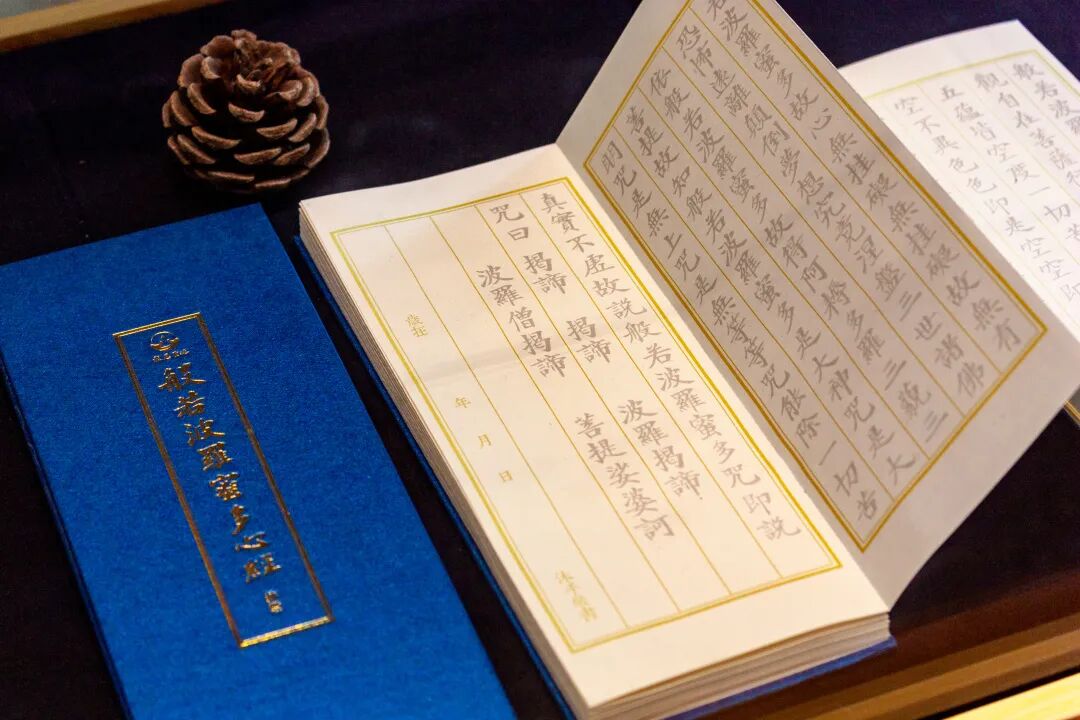 般若波羅
觀自在菩薩行
五蘊皆空度一切苦
空不異色色即是空空即
若波羅蜜多故心無挂礙無挂礙故無有
恐怖遠離顛倒夢想究竟涅盤三世諸佛
依般若波羅蜜多故得阿耨多羅三藐三
菩提故知般若波羅蜜多是大神咒是大
明咒是無上咒是無等等咒能除一切苦
真實不虛故說般若波羅蜜多咒即說
咒曰 揭諦 揭諦 波羅揭諦
波羅僧揭諦 菩提娑婆訶
歲在 年 月 日
沐手敬書
般若波羅蜜多心經